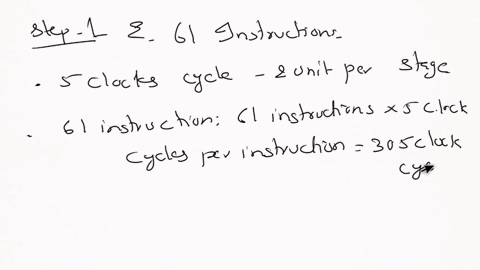 Step-1 2. 61 Instructions.
. 5 clocks cycle - 2 unit per stage
. 61 instruction: 61 instructions x 5 clock
cycles per instruction = 305 clock